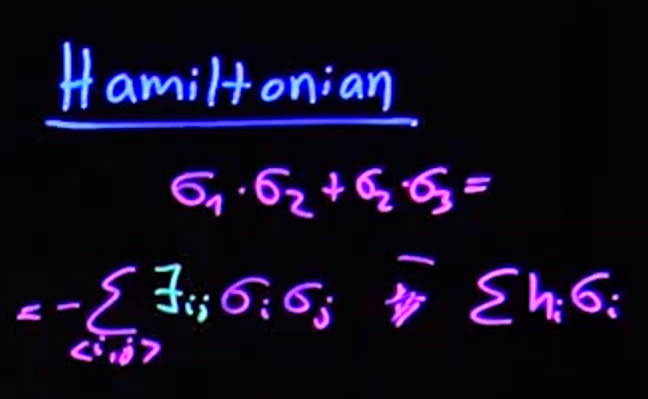 Hamiltonian
σ₁·σ₂+σ₂·σ₃=
=-∑ J_ij σ_i σ_j - ∑ h_i σ_i
<i,j>